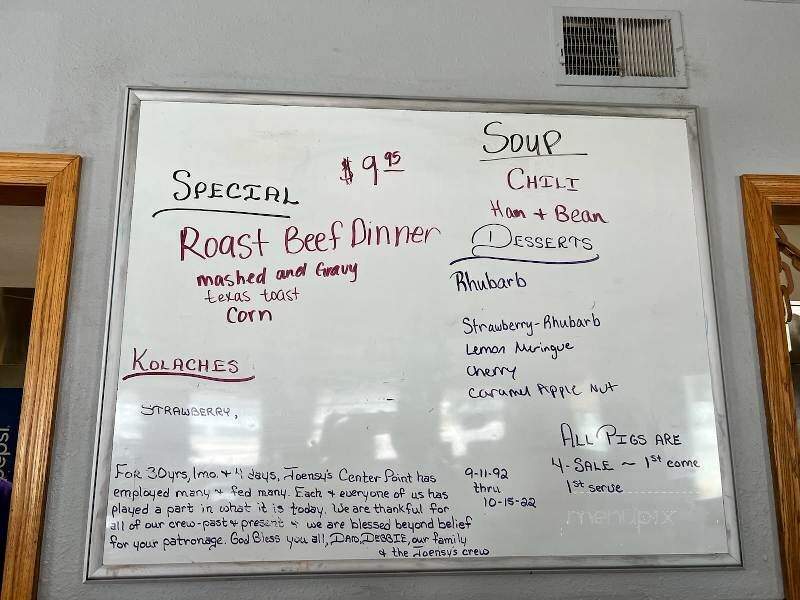 $ 9.95
SPECIAL
Roast Beef Dinner
mashed and Gravy
texas toast
Corn
KOLACHES
STRAWBERRY,
SOUP
CHILI
Ham + Bean
DESSERTS
Rhubarb
Strawberry-Rhubarb
Lemon Meringue
Cherry
Caramel Apple Nut
ALL PIGS ARE
4-SALE ~ 1st come
1st serve
FOR 30yrs, 1mo. + 4 days, Joensy's Center Point has
employed many + fed many. Each + everyone of us has
played a part in what it is today. We are thankful for
all of our crew-past + present + we are blessed beyond belief
for your patronage. God Bless you all, DAD, DEBBIE, our family
+ the Joensy's crew
9-11-92
thru
10-15-22
menupix
pepsi